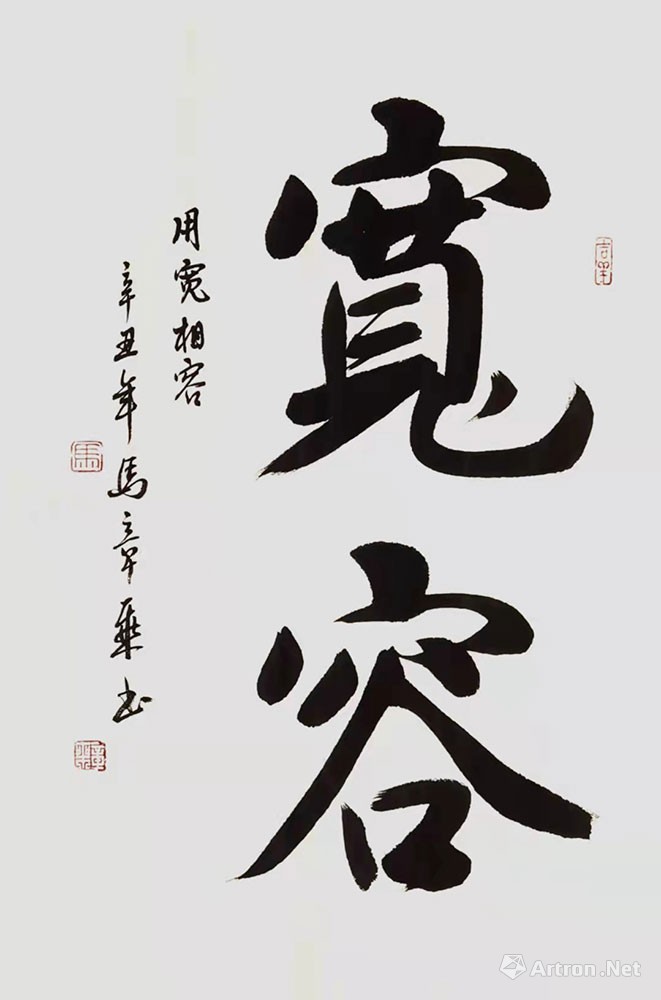 寬容
用宽相容
辛丑年馬章乘书
Artron.Net